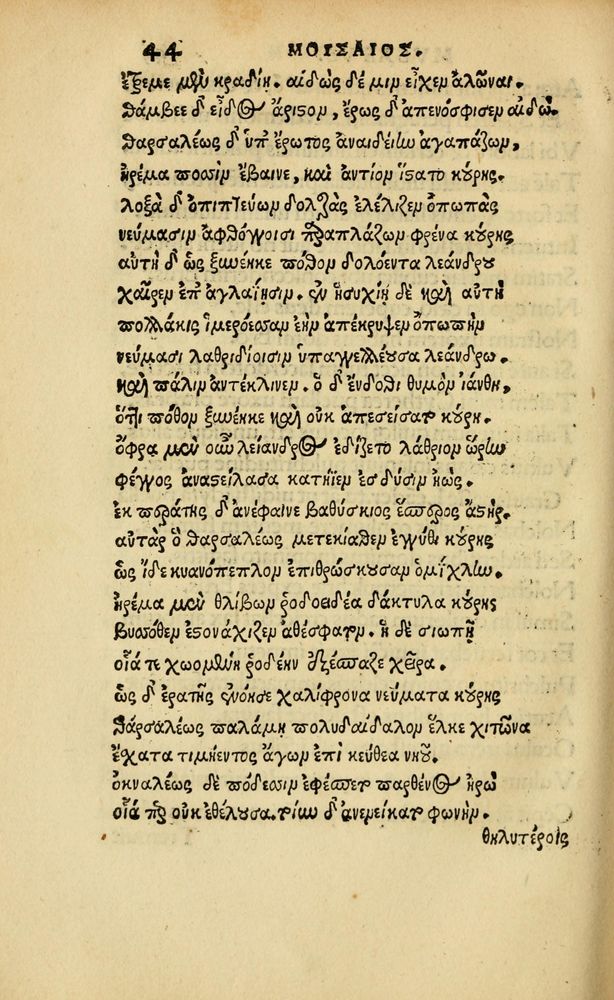 44 ΜΟΥΣΑΙΟΣ.
ἔτρεμε μὲν κραδίη. αἰδὼς δέ μιν εἶχεν ἁλῶναι.
θάμβεε δ᾽ εἶδος ἄριστον, ἔρως δ᾽ ἀπενόσφισεν αἰδῶ.
θαρσαλέως δ᾽ ὑπ᾽ ἔρωτος ἀναιδείην ἀγαπάζων,
ἠρέμα ποσὶν ἔβαινε, καὶ ἀντίον ἵστατο κούρης.
λοξὰ δ᾽ ὀπιπτεύων δολερὰς ἐλέλιζεν ὀπωπὰς
νεύμασιν ἀφθόγγοισι παραπλάζων φρένα κούρης
αὐτὴ δ᾽ ὡς ξυνέηκε πόθον δολόεντα λεάνδρου
χαῖρεν ἐπ᾽ ἀγλαΐησιν. ἐν ἡσυχίῃ δὲ καὶ αὐτὴ
πολλάκις ἱμερόεσσαν ἑὴν ἀπέκρυψεν ὀπωπὴν
νεύμασι λαθριδίοισιν ὑπαγγέλλουσα λεάνδρῳ.
καὶ πάλιν ἀντέκλινεν. ὁ δ᾽ ἔνδοθι θυμὸν ἰάνθη,
ὅττι πόθον ξυνέηκε καὶ οὐκ ἀπεσείσατο κούρη.
ὄφρα μὲν οὖν λείανδρος ἐδίζετο λάθριον ὥρην
φέγγος ἀναστείλασα κατήϊεν ἐς δύσιν ἠώς.
ἐκ περάτης δ᾽ ἀνέφαινε βαθύσκιος ἕσπερος ἀστήρ.
αὐτὰρ ὁ θαρσαλέως μετεκίαθεν ἐγγύθι κούρης
ὡς ἴδε κυανόπεπλον ἐπιθρώσκουσαν ὁμίχλην.
ἠρέμα μὲν θλίβων ῥοδοειδέα δάκτυλα κούρης
βυσσόθεν ἐστονάχιζεν ἀθέσφατον. ἡ δὲ σιωπῇ
οἷά τε χωομένη ῥοδέην ἐξέσπασε χεῖρα.
ὡς δ᾽ ἐρατῆς ἐνόησε χαλίφρονα νεύματα κούρης
θαρσαλέως παλάμῃ πολυδαίδαλον ἕλκε χιτῶνα
ἔσχατα τιμήεντος ἄγων ἐπὶ κεύθεα νηοῦ.
ὀκναλέως δὲ πόδεσσιν ἐφέσπετο παρθένος ἡρὼ
οἷά περ οὐκ ἐθέλουσα. τοίην δ᾽ ἀνενείκατο φωνήν.
θηλυτέροις